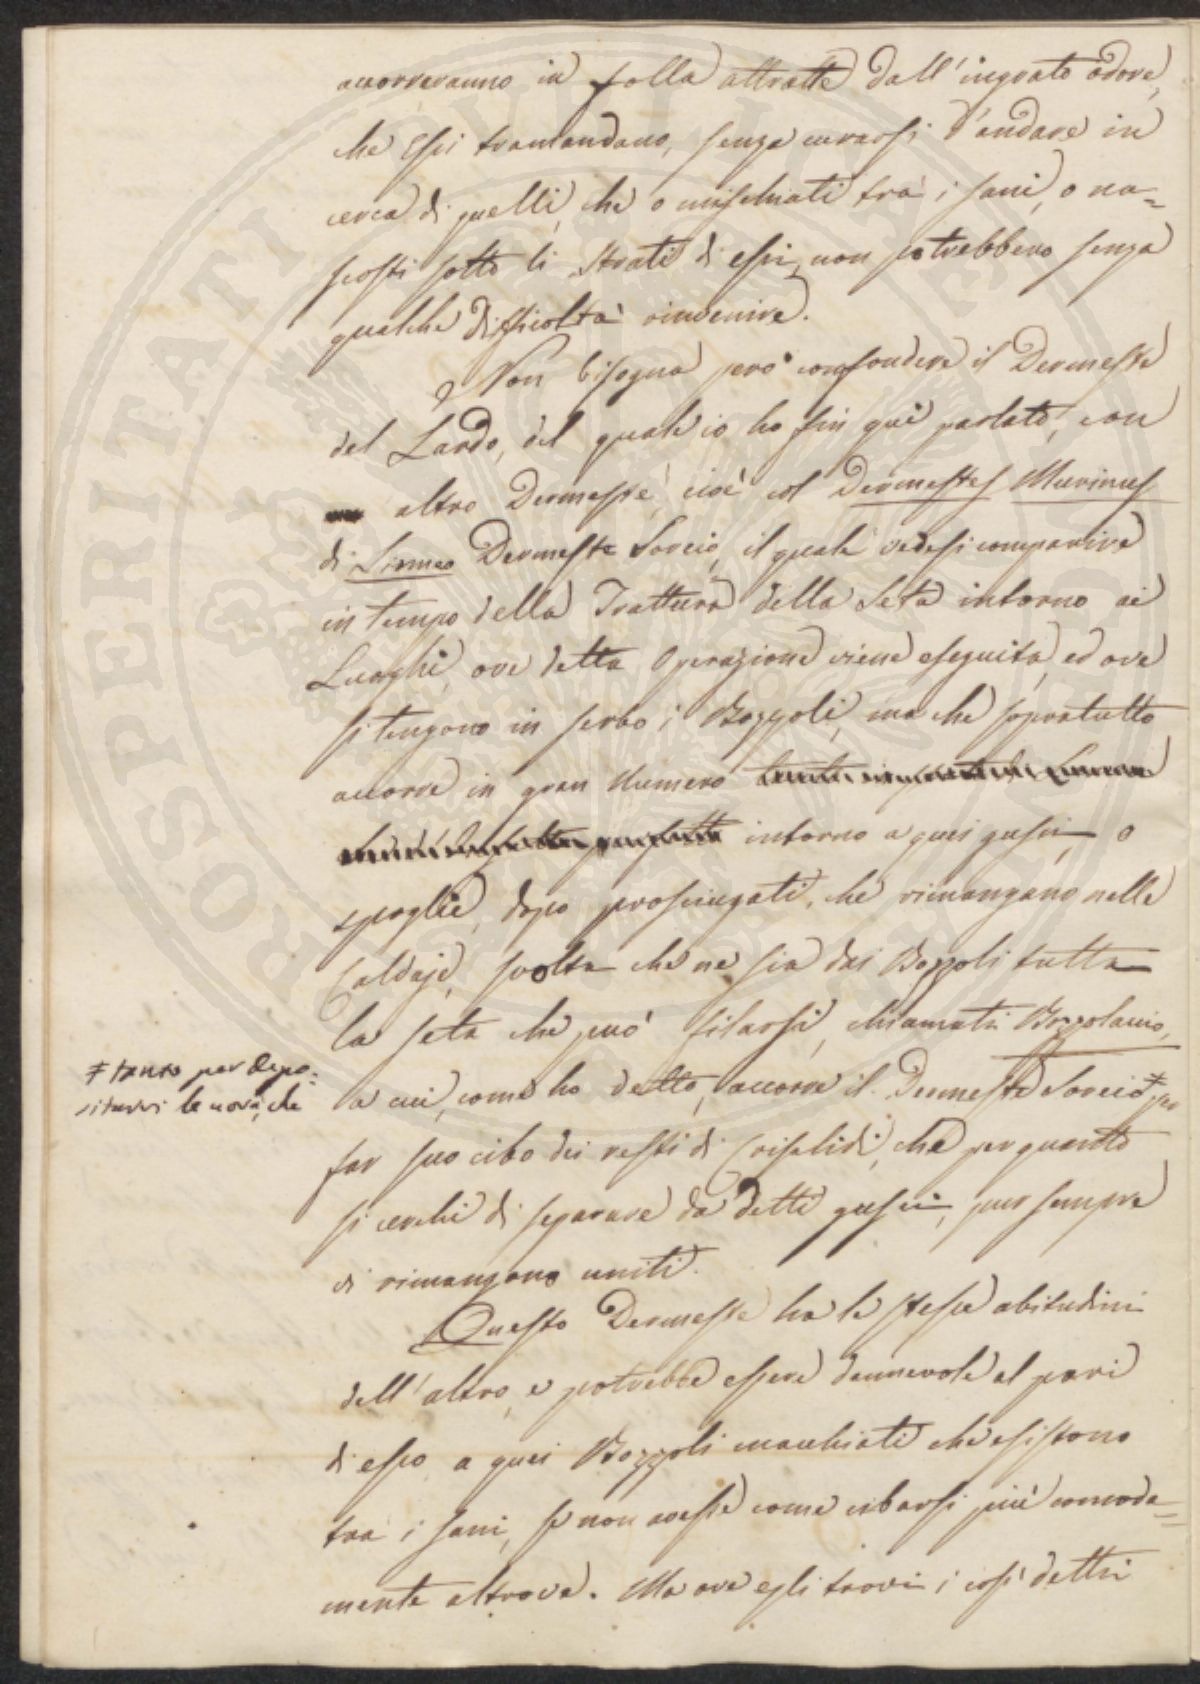 accorreranno in folla attratte dall'ingrato odore,
che Essi tramandano, senza curarsi d'andare in
cerca di quelli, che o mischiati tra i sani, o na=
scosti sotto li strati di essi, non potrebbero senza
qualche difficoltà rinvenire.
Non bisogna però confondere il Dermeste
del Lardo, del quale io ho fin quì parlato, con
altro Dermeste, cioè col Dermestes Murinus
di Linneo Dermeste Sorcio, il quale vedesi comparire
in tempo della Trattura della Seta intorno ai
Luoghi, ove detta Operazione viene eseguita, ed ove
si tengono in serbo i Bozzoli, ma che sopratutto
accorre in gran Numero
intorno a quei gusci, o
spoglie, dopo prosciugati, che rimangano nelle
Caldaje, svolta che ne sia dai Bozzoli tutta
la seta che può filarsi, chiamati Bozzolacci,
a cui, come ho detto, accorre il Dermeste Sorcio ‡ per
‡ tanto per depo=
sitarvi le uova, che
far suo cibo dei resti di Crisalidi, che per quanto
si cerchi di separare da detti gusci, pur sempre
vi rimangono uniti.
Questo Dermeste ha le stesse abitudini
dell'altro, e potrebbe essere dannevole al pari
di esso a quei Bozzoli macchiati che esistono
tra i sani, se non avesse come cibarsi più comoda=
mente altrove. Ma ove egli trovi i così detti